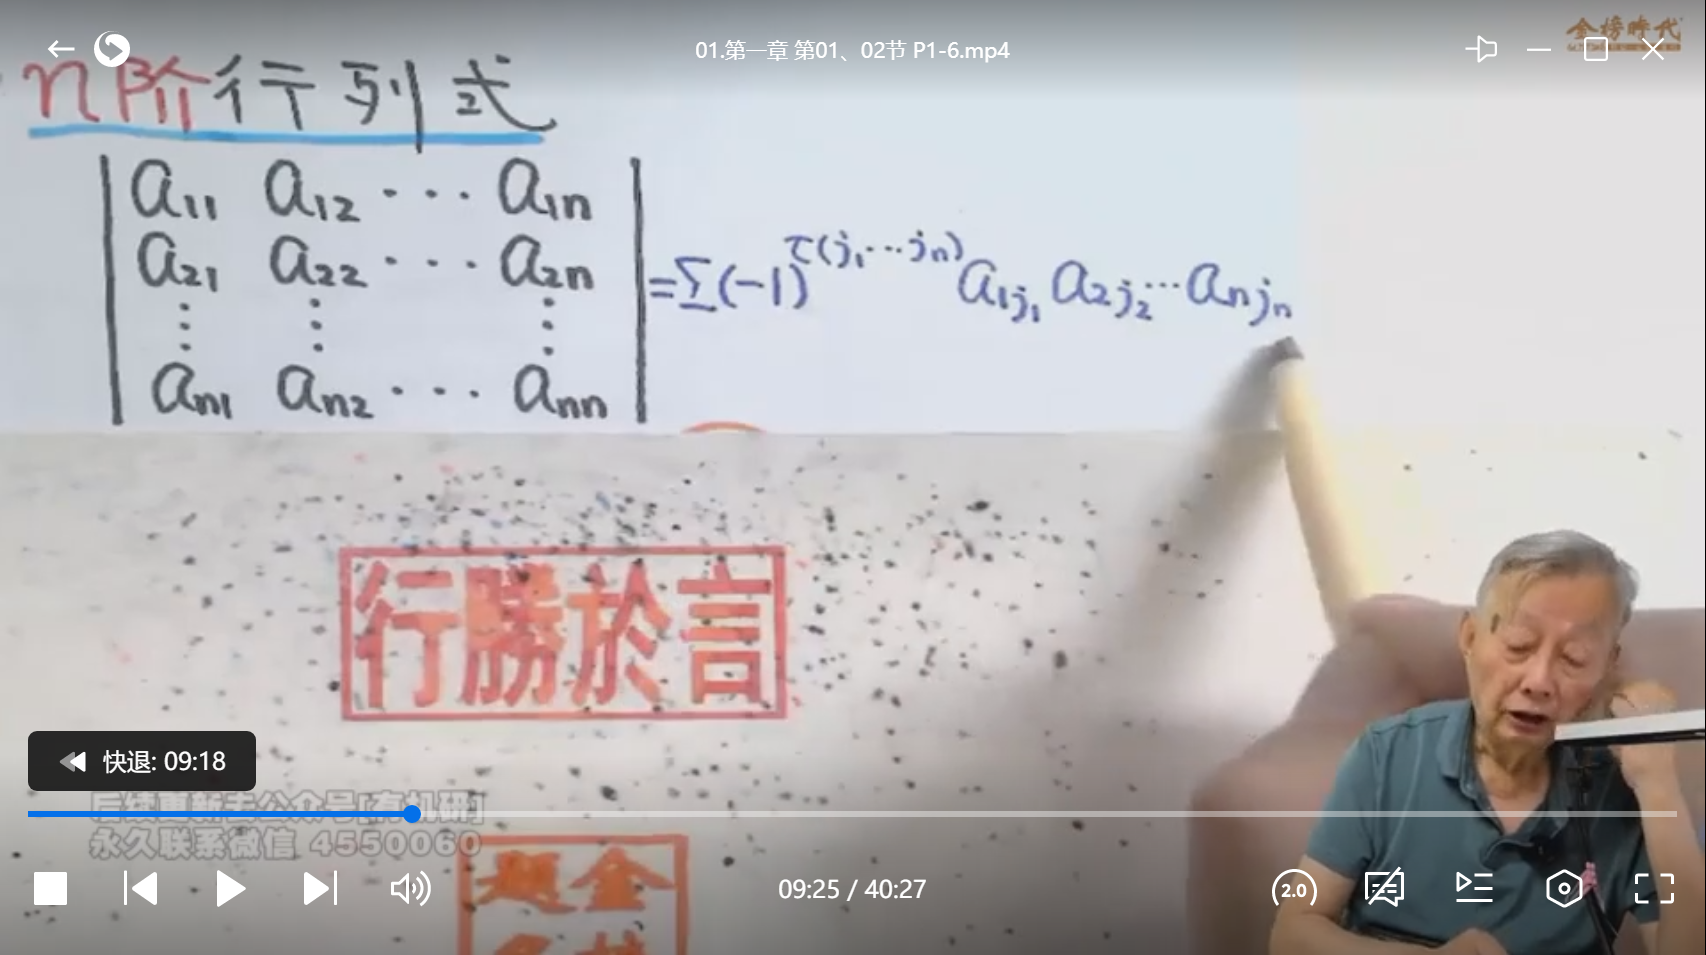 金榜時代
01.第一章 第01、02节 P1-6.mp4
n阶行列式
a₁₁ a₁₂ ··· a₁ₙ
a₂₁ a₂₂ ··· a₂ₙ
⋮ ⋮ ⋮
aₙ₁ aₙ₂ ··· aₙₙ
=Σ(-1)^τ(j₁···jₙ) a₁j₁ a₂j₂ ··· aₙjₙ
行勝於言
快退: 09:18
后续更新去公众号[有机研]
永久联系微信 4550060
09:25 / 40:27
2.0